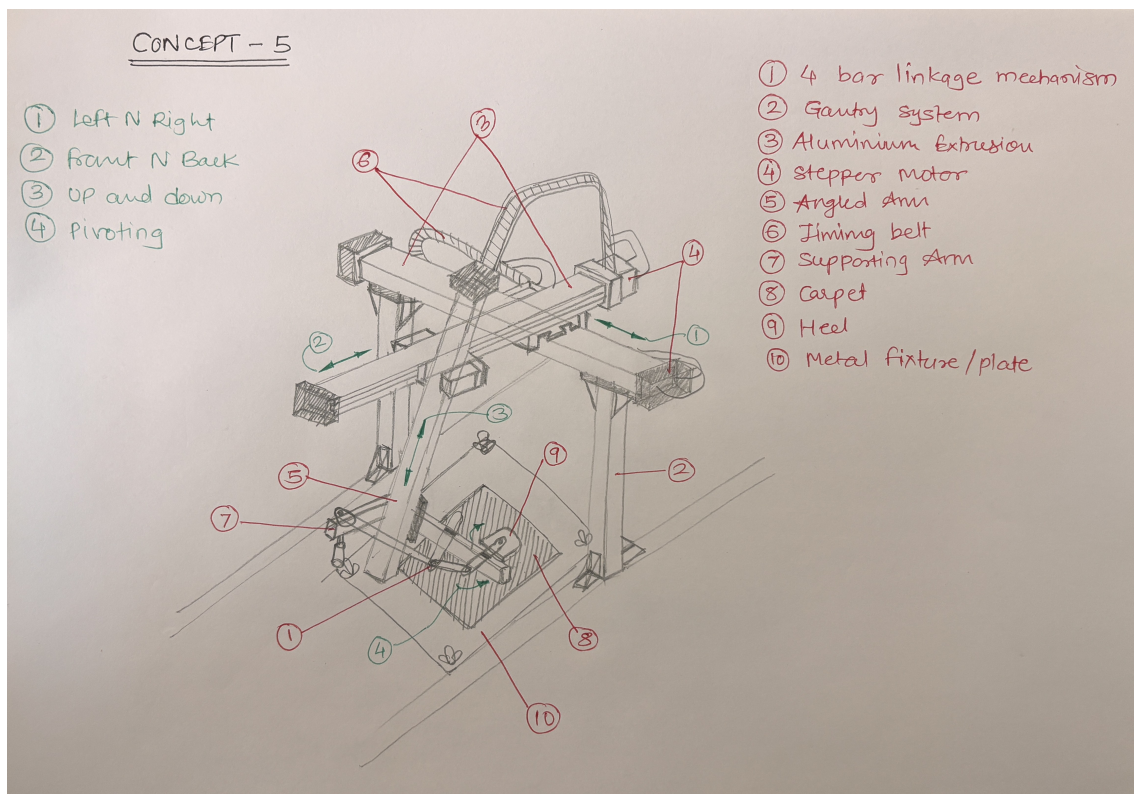 CONCEPT - 5
① Left N Right
② Front N Back
③ UP and down
④ Pivoting
① 4 bar linkage mechanism
② Gantry system
③ Aluminium Extrusion
④ Stepper motor
⑤ Angled Arm
⑥ Timing belt
⑦ Supporting Arm
⑧ Carpet
⑨ Heel
⑩ Metal fixture/plate
③
⑥
④
②
①
③
⑨
⑤
②
⑦
①
④
⑧
⑩